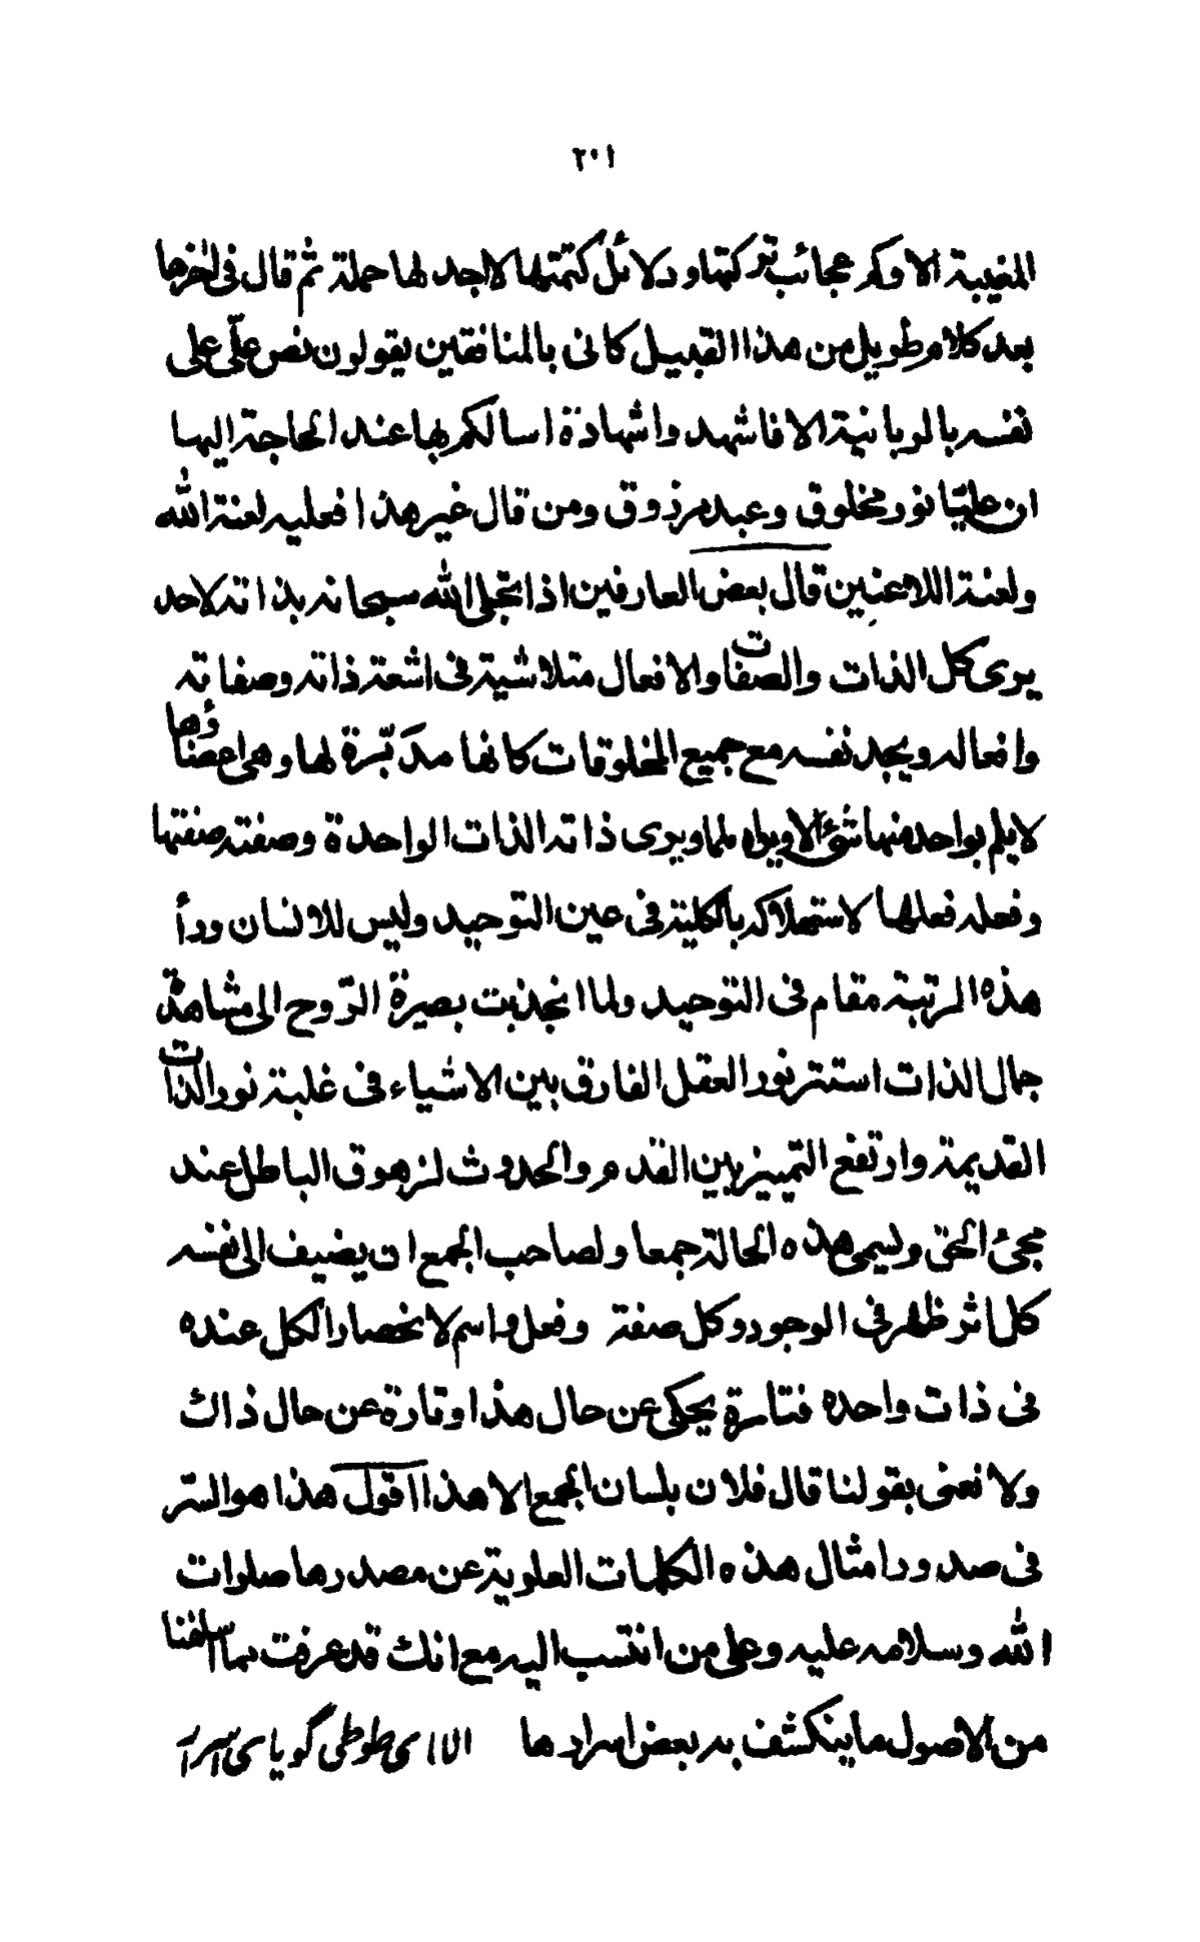 ٢٠١
المغيبة الا وكم عجائب تركتها ودلائل كتمتها لا اجد لها حملة ثم قال فى اٰخرها
بعد كلام طويل من هذا القبيل كانى بالمنافقين يقولون نص علّى على
نفسه بالربانية الا فاشهدوا شهادة اسالكم بها عند الحاجة اليها
ان عليّا نور مخلوق وعبد مرزوق ومن قال غير هذا فعليه لعنة الله
ولعنة اللاعنين قال بعض العارفين اذا تجلى الله سبحانه بذاته لاحد
يرى كل الذات والصفات والافعال متلاشية فى اشعة ذاته وصفاته
وافعاله ويجد نفسه مع جميع المخلوقات كانها مدبّرة لها وهى اعضاؤها
لا يلم بواحد منها شئ الا ويراه ملما ويرى ذاته الذات الواحدة وصفته صفتها
وفعله فعلها لاستهلاكه بالكلية فى عين التوحيد وليس للانسان ورأ
هذه المرتبة مقام فى التوحيد ولما انجذبت بصيرة الرّوح الى مشاهدة
جمال الذات استتر نور العقل الفارق بين الاشياء فى غلبة نور الذات
القديمة وارتفع التمييز بين القدم والحدوث لزهوق الباطل عند
مجئ الحق ويسمى هذه الحالة جمعا ولصاحب الجمع ان يضيف الى نفسه
كل اثر ظهر فى الوجود وكل صفة وفعل واسم لانحصار الكل عنده
فى ذات واحدة فتارة يحكى عن حال هذا وتارة عن حال ذاك
ولا نعنى بقولنا قال فلان بلسان الجمع الا هذا اقول هذا هو السّر
فى صدور امثال هذه الكلمات العلوية عن مصدرها صلوات
الله وسلامه عليه وعلى من انتسب اليه مع انك قد عرفت بما اسلفنا
من الاصول ما ينكشف به بعض اسرارها الا اى طوطى گوياى اسرار